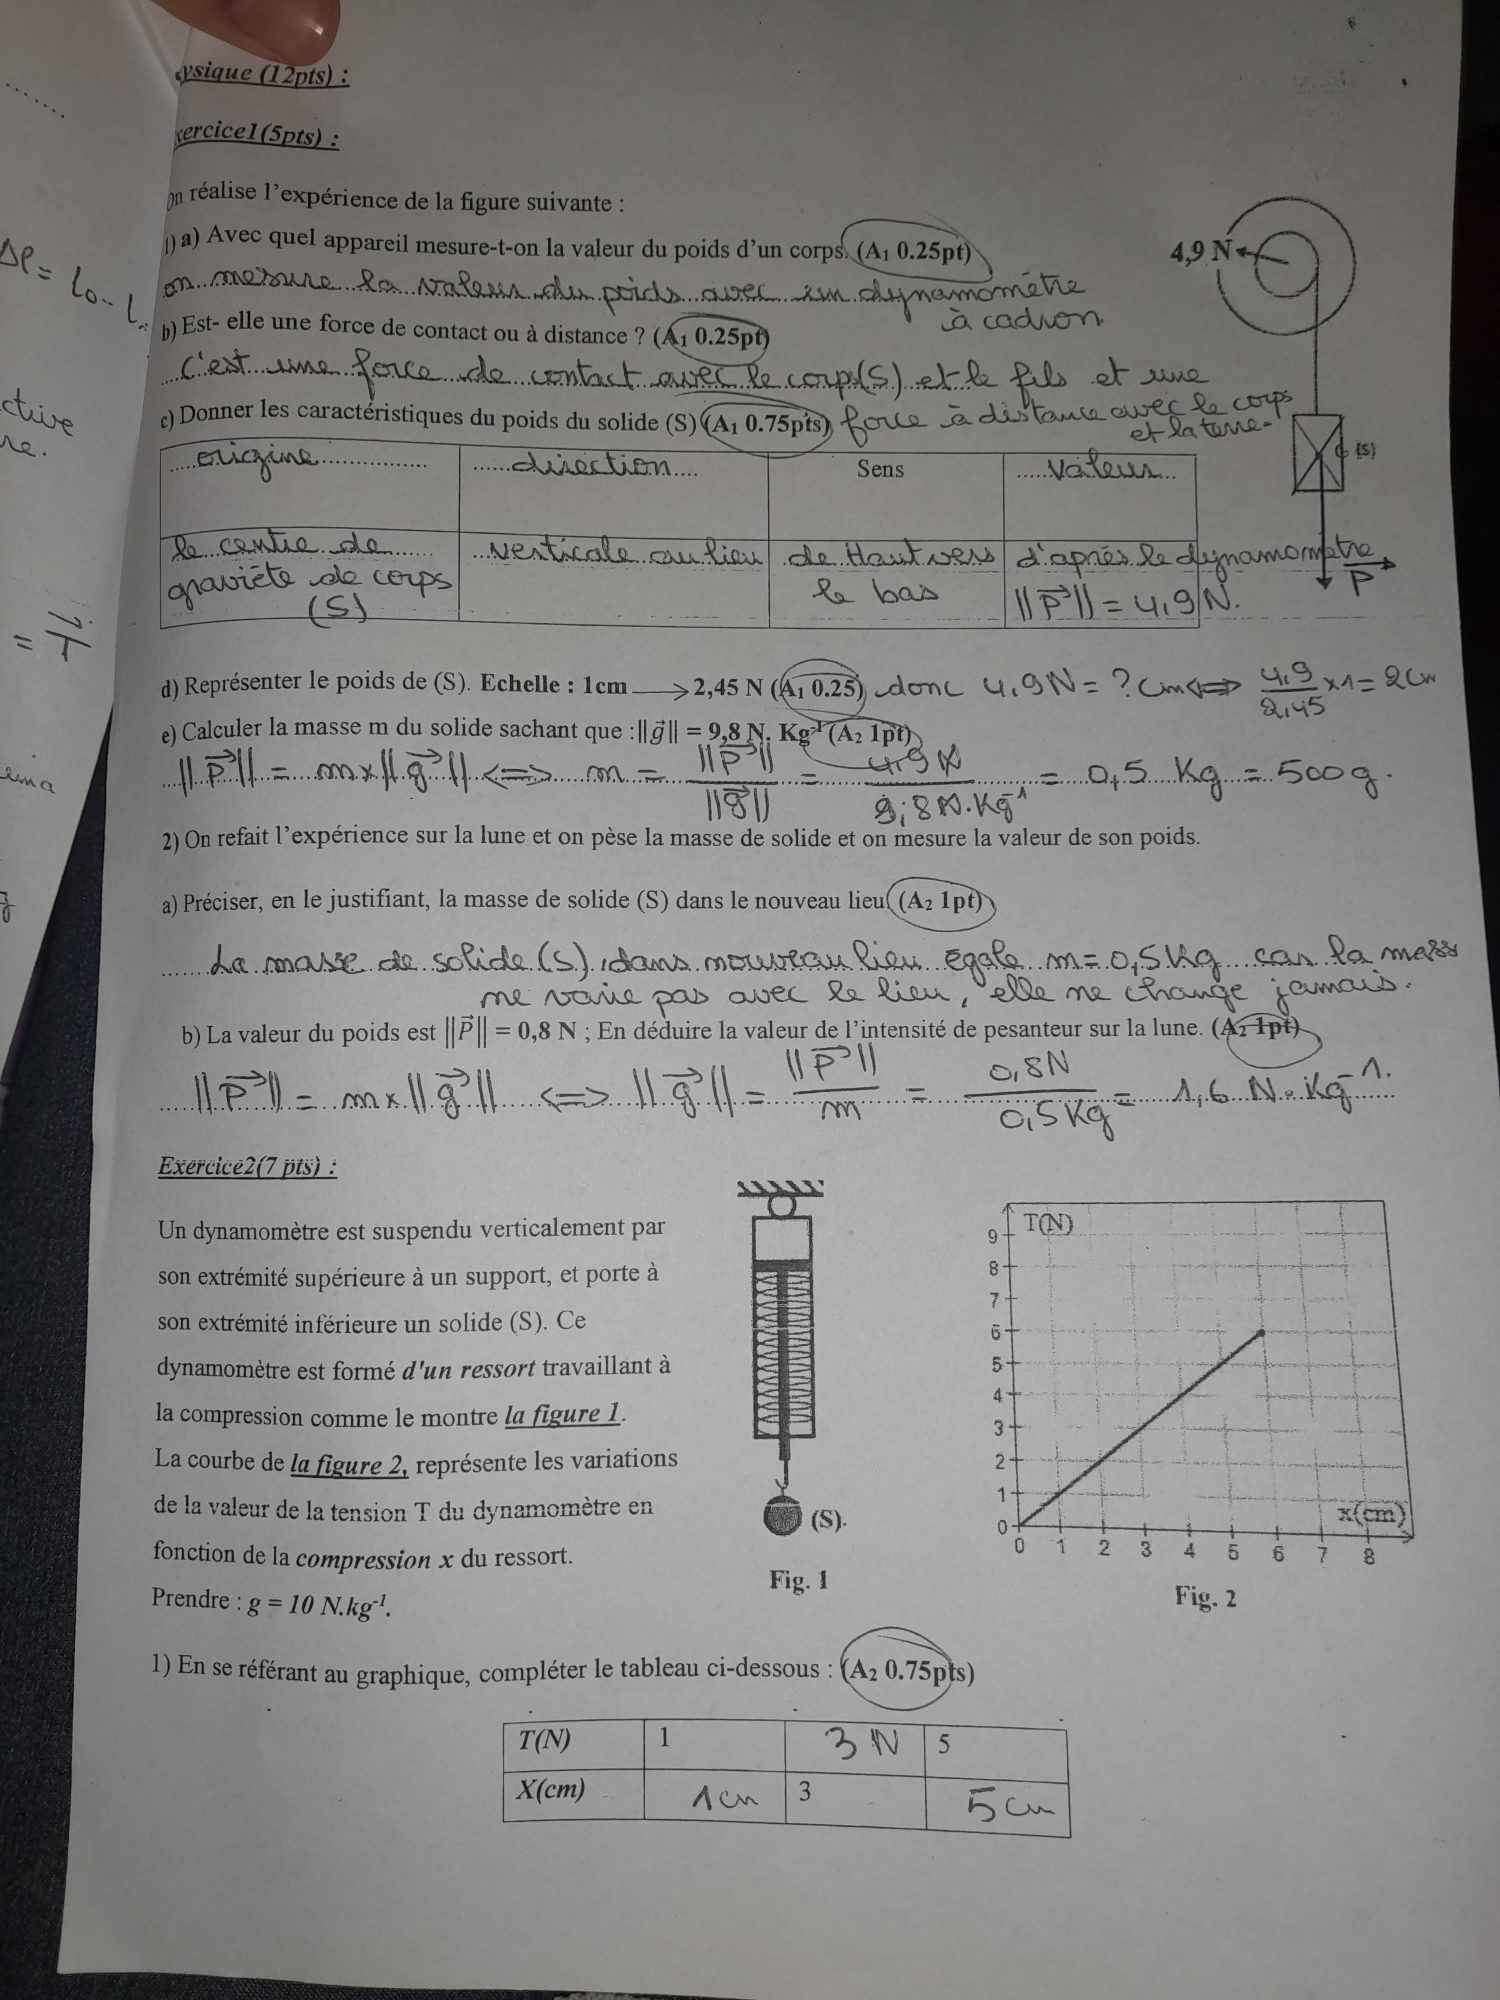 ysique (12pts) :
xercice1(5pts) :
on réalise l'expérience de la figure suivante :
1) a) Avec quel appareil mesure-t-on la valeur du poids d'un corps. (A1 0.25pt)
4,9 N
on mesure la valeur du poids avec un dynamomètre
à cadron.
b) Est- elle une force de contact ou à distance ? (A1 0.25pt)
C'est une force de contact avec le corps(S) et le fils et une
force à distance avec le corps
et la terre-
c) Donner les caractéristiques du poids du solide (S) (A1 0.75pts)
(S)
origine direction Sens valeur
le centre de graviéte de corps (S)
verticale au lieu
de Haut vers le bas
d'aprés le dynamometre
||P⃗|| = 4,9 N.
P⃗
d) Représenter le poids de (S). Echelle : 1cm → 2,45 N (A1 0.25) donc 4,9N = ? cm <=> 4,9/2,45 x1 = 2cm
e) Calculer la masse m du solide sachant que :||g⃗|| = 9,8 N. Kg-1 (A2 1pt)
||P⃗|| = m x ||g⃗|| <=> m = ||P⃗||/||g⃗|| = 4,9 N/9,8 N.Kg-1 = 0,5 Kg = 500g.
2) On refait l'expérience sur la lune et on pèse la masse de solide et on mesure la valeur de son poids.
a) Préciser, en le justifiant, la masse de solide (S) dans le nouveau lieu (A2 1pt)
La masse de solide (S), dans nouveau lieu égale m=0,5Kg car la mass
ne varie pas avec le lieu, elle ne change jamais.
b) La valeur du poids est ||P⃗|| = 0,8 N ; En déduire la valeur de l'intensité de pesanteur sur la lune. (A2 1pt)
||P⃗|| = m x ||g⃗|| <=> ||g⃗|| = ||P⃗||/m = 0,8N/0,5Kg = 1,6 N.Kg-1.
Exercice2(7 pts) :
Un dynamomètre est suspendu verticalement par
son extrémité supérieure à un support, et porte à
son extrémité inférieure un solide (S). Ce
dynamomètre est formé d'un ressort travaillant à
la compression comme le montre la figure 1.
La courbe de la figure 2, représente les variations
de la valeur de la tension T du dynamomètre en
fonction de la compression x du ressort.
Prendre : g = 10 N.kg-1.
(S).
Fig. 1
T(N)
9
8
7
6
5
4
3
2
1
0
x(cm)
0 1 2 3 4 5 6 7 8
Fig. 2
1) En se référant au graphique, compléter le tableau ci-dessous : (A2 0.75pts)
T(N) 1 3 N 5
X(cm) 1cm 3 5cm
Δl = l0 - l
ctive
re.
= T⃗